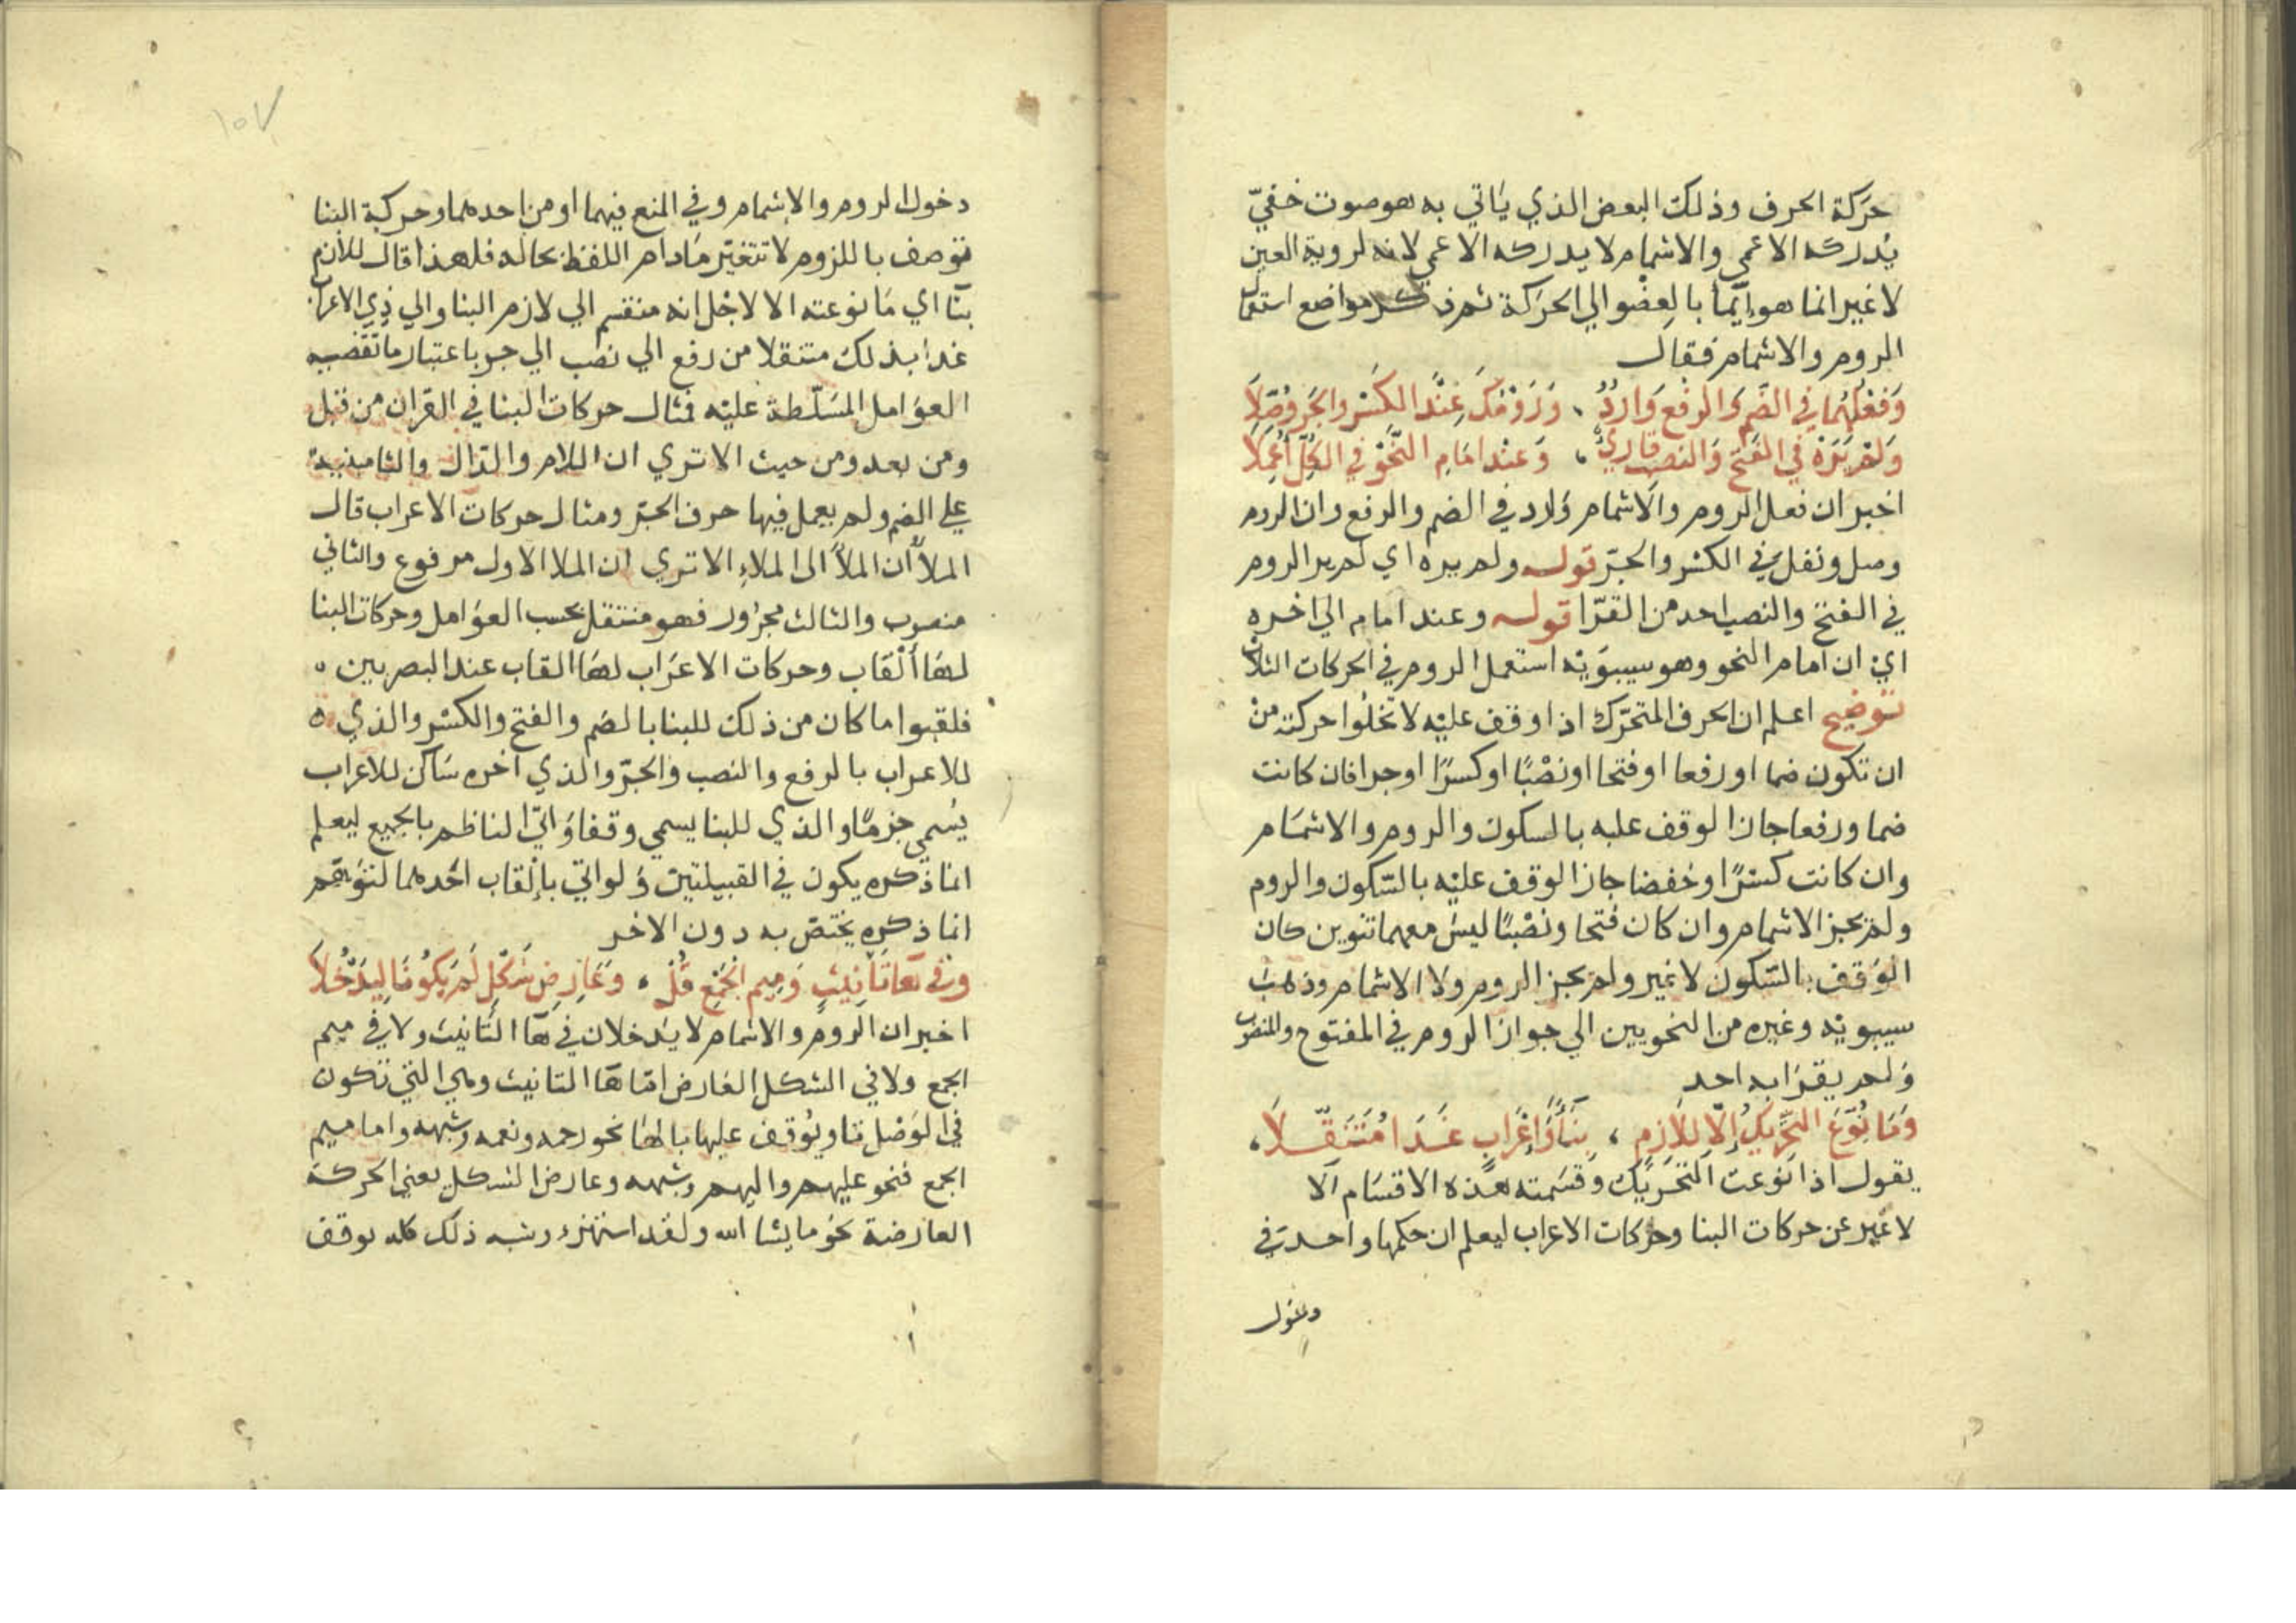 حركة الحرف وذلك البعض الذي ياتي به هو صوت خفيّ
يدركه الاعمي والاشمام لا يدركه الاعمي لانه لروية العين
لا غير انما هو ايمأ بالعضو الي الحركة ثم ذكر مواضع استعمال
الروم والاشمام فقال
وَفعْلُهُمَا في الضَّمِ وَالرفْع وَارِدُ ، وَرَوْمُكَ عِنْدَ الكَسْرِ والجَرِ وُصِّلَا
وَلمْ يَرَهْ في الفَتْحِ وَالنصبِ قارئٌ ، وَعنْدَ امَامِ النَّحْوِ في الكُلِّ أُعْمِلَا
اخبر ان فعل الروم والاشمام وارد في الضم والرفع وان الروم
وصل ونقل في الكسر والجرّ قوله ولم يره اي لم ير الروم
في الفتح والنصب احد من القرّا قوله وعند امام الي اخره
اي ان امام النحو وهو سيبويه استعمل الروم في الحركات الثلاث
توضيح اعلم ان الحرف المتحرّك اذا وقف عليه لا تخلوا حركته من
ان تكون ضما او رفعا او فتحا او نصْبًا او كسرًا او جرا فان كانت
ضما ورفعا جاز الوقف عليه بالسكون والروم والاشمام
وان كانت كسرًا وخفضا جاز الوقف عليه بالسّكون والروم
ولم يجز الاشمام وان كان فتحا ونصْبًا ليس معهما تنوين كان
الوَقف بالسّكون لا غير ولم يجز الروم ولا الاشمام وذهب
سيبويه وغيره من النحويين الي جواز الروم في المفتوح والمنصوب
ولم يقرا به احد
وَمَا نُوِّعَ التَّحْرِيكُ إلّا لِلَازِمٍ ، بِنَاءً وَإعْرَابٍ غَدَا مُتَنَقِّلَا ،
يقول اذا نوعت التحريك وقسمته هذه الاقسام الا
لا غير عن حركات البنا وحركات الاعراب ليعلم ان حكمها واحد في
دخول
١٥٧
دخول الروم والاشمام وفي المنع فيهما او من احدهما وحركة البنا
توصف باللزوم لا تتغير مادام اللفظ بحاله فلهذا قال للازم
بنا اي ما نوعته الا لاجل انه منقسم الي لازم البنا والي ذي الاعراب
غدا بذلك متنقلا من رفع الي نصب الي جر باعتبار ما تقتضيه
العوامل المسلّطة عليه فمثال حركات البنا في القران من قبل
ومن بعد ومن حيث الا تري ان اللام والدّال والثا مبنية
علي الضم ولم يعمل فيها حرف الجرّ ومثال حركات الاعراب قال
الملأ ان الملأ الى الملاءِ الا تري ان الملا الاول مرفوع والثاني
منصوب والثالث مجرور فهو متنقل بحسب العوامل وحركات البنا
لها ألقاب وحركات الاعراب لها القاب عند البصريين ه
فلقبوا ما كان من ذلك للبنا بالضم والفتح والكسْر والذي ه
للاعراب بالرفع والنصب والجرّ والذي اخره ساكن للاعراب
يُسْمي جزمًا والذي للبنا يسمي وقفا وَاتي الناظم بالجميع ليعلم
انما ذكره يكون في القبيلتين وَلو اتي بالقاب احدهما لتوهّم
انما ذكره يختص به دون الاخر
وَفي هَا تَانِيثٍ وَمِيمِ الجَمْعِ قُلْ ، وَعَارِضِ شَكْلٍ لَمْ يَكُونَا لِيَدْخُلَا
اخبر ان الروم والاشمام لا يدخلان في ها التانيث ولا في ميم
الجمع ولا في الشكل العارض امّا ها التانيث وهي التي تكون
في الوَصْل تا ويُوقف عليها بالها نحو رحمه ونعمه وشبهه واما ميم
الجمع فنحو عليهم واليهم وشبهه وعارض الشكل يعني الحركة
العارضة نحو ما يشا الله ولقد استهزء وشبه ذلك كله يوقف